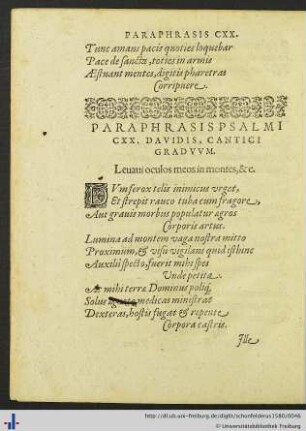 PARAPHRASIS CXX.
Tunc amans pacis quoties loquebar
Pace de sancta, toties in armis
Æstuant mentes, digitis pharetras
Corripuere.
PARAPHRASIS PSALMI
CXX. DAVIDIS, CANTICI
GRADVVM.
Leuaui oculos meos in montes, &c.
DVm ferox telis inimicus vrget,
Et strepit rauco tuba cum fragore,
Aut grauis morbus populatur agros
Corporis artus.
Lumina ad montem vaga nostra mitto
Proximum, & visu vigilans quid isthinc
Auxilij specto, fuerit mihi spes
Vnde petita.
At mihi terræ Dominus poliq́;
Solus medicas ministrat
Dexteras, hostis fugat & repente
Corpora castris.
Ille
http://dl.ub.uni-freiburg.de/diglit/schonfelderus1580/0046
© Universitätsbibliothek Freiburg